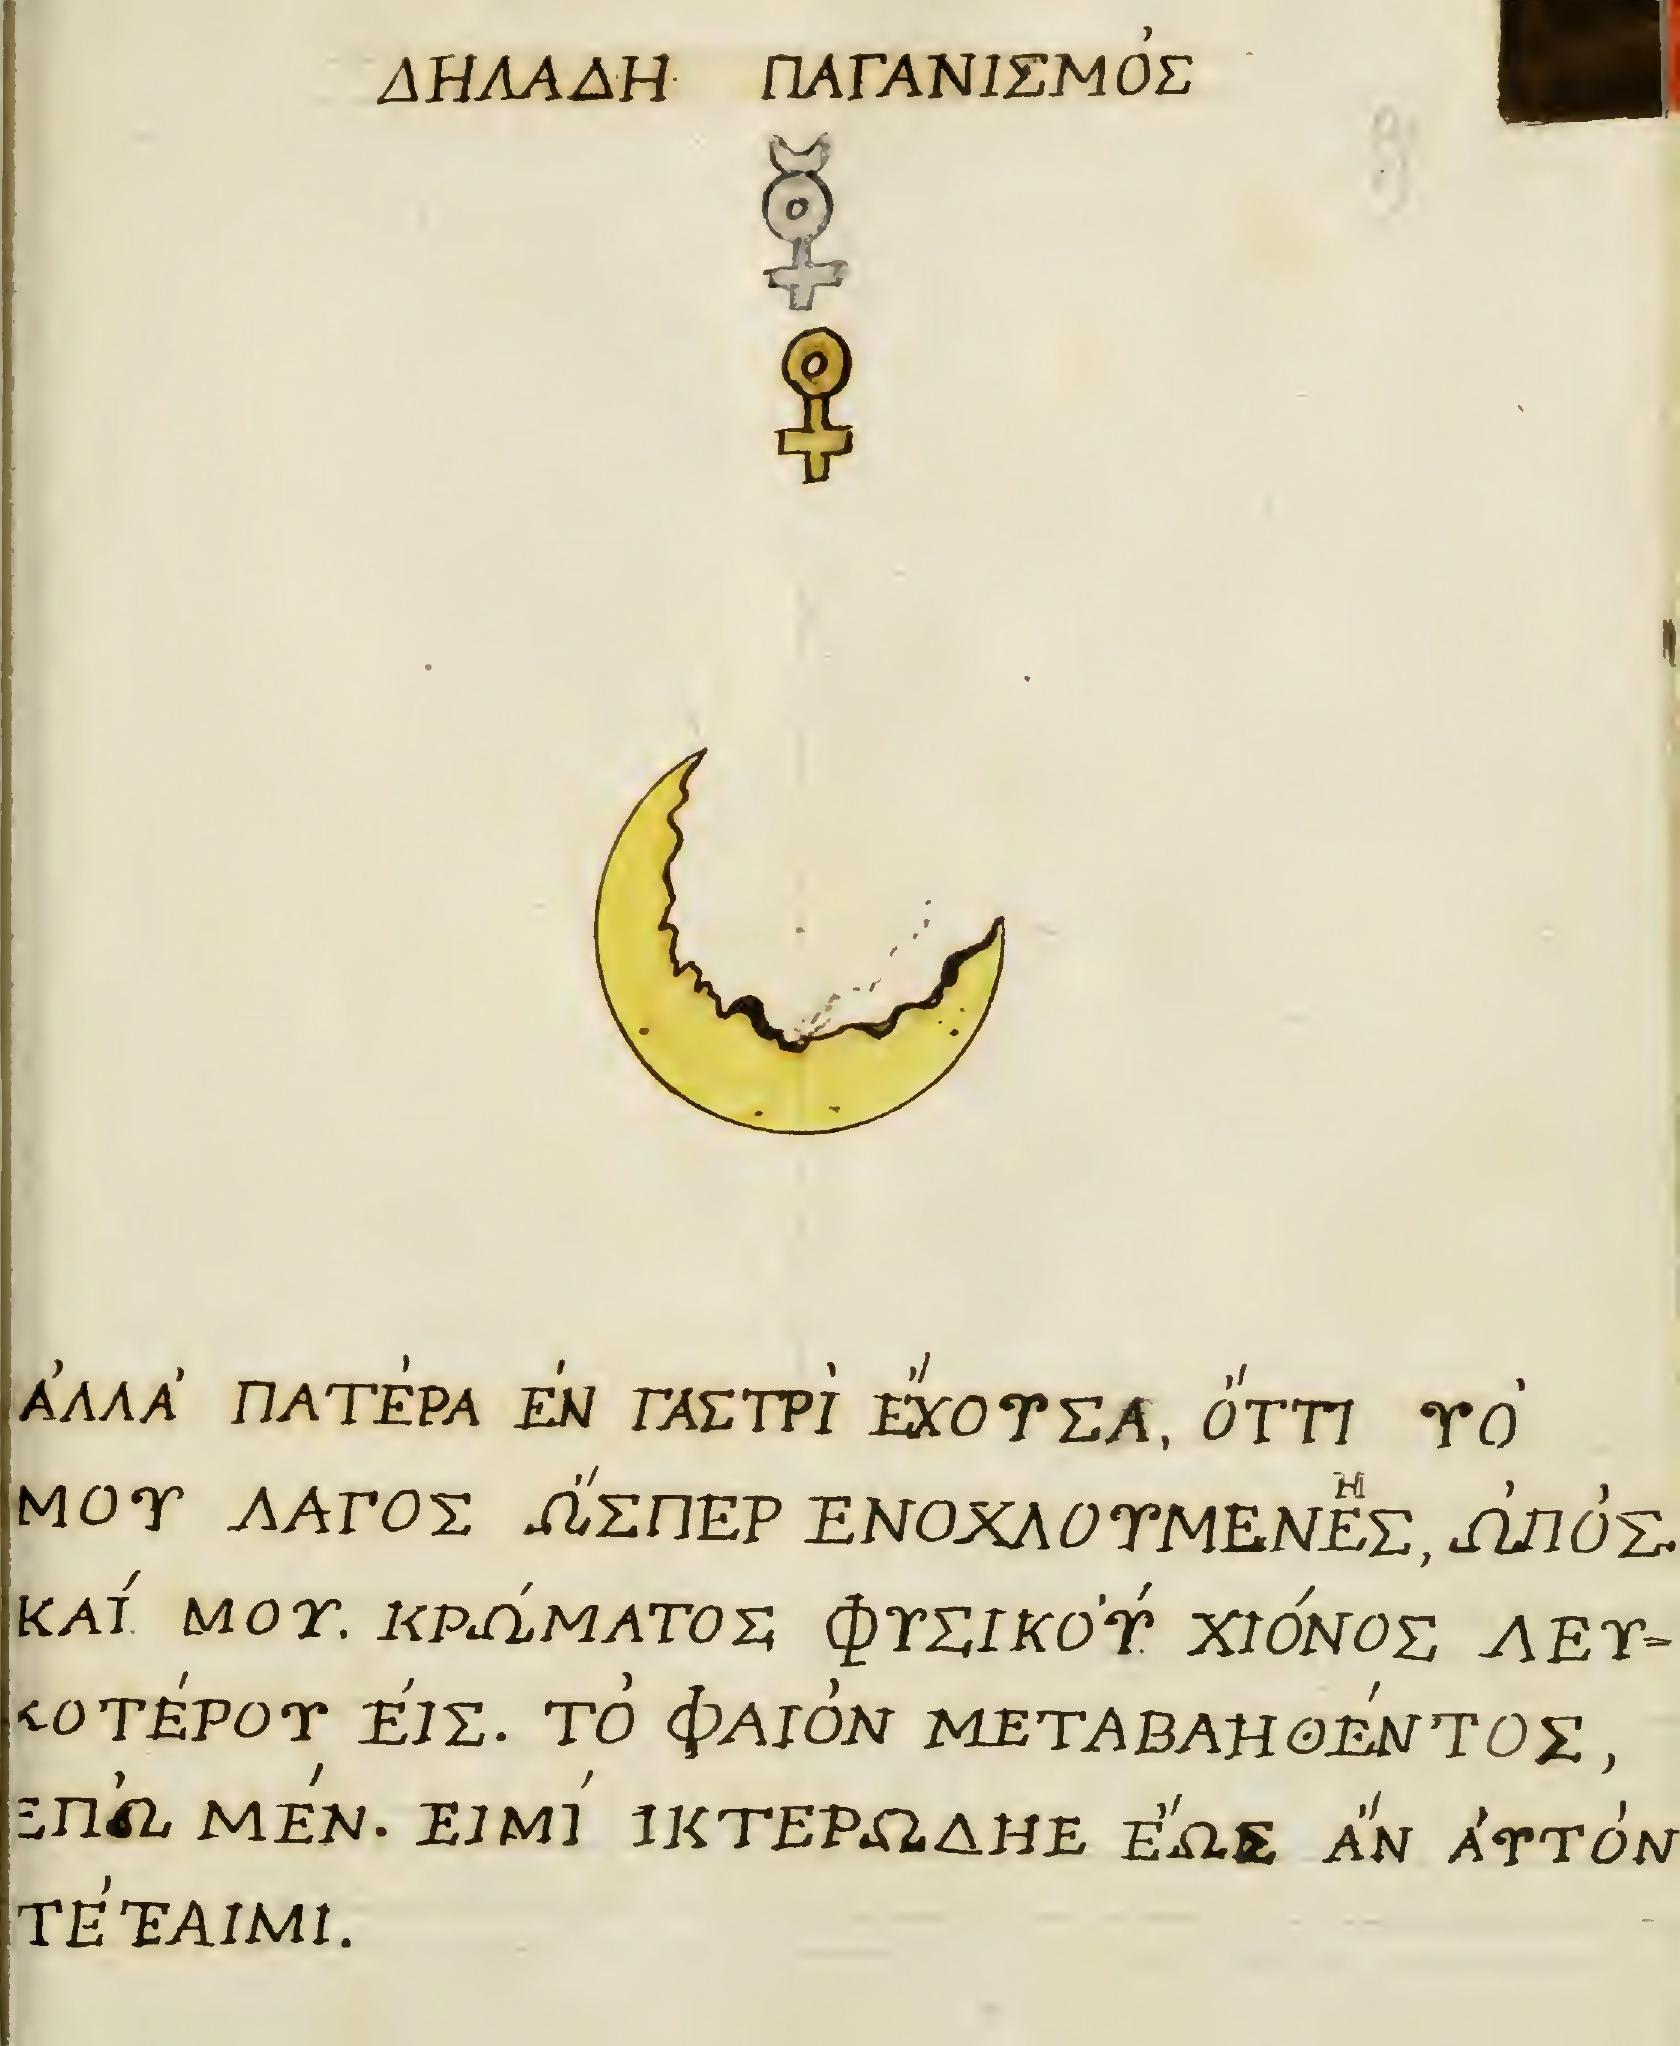 ΔΗΛΑΔΗ ΠΑΓΑΝΙΣΜΌΣ
ἈΛΛΆ ΠΑΤΈΡΑ ἘΝ ΓΑΣΤΡῚ ἜΧΟΥΣΑ, ὍΤΤΙ ΥὈ
ΜΟΥ ΛΑΓΟΣ ὭΣΠΕΡ ΕΝΟΧΛΟΥΜΕΝΕΗΣ, ὨΠΌΣ.
ΚΑΊ ΜΟΥ. ΚΡΏΜΑΤΟΣ ΦΥΣΙΚΟΎ ΧΙΌΝΟΣ ΛΕΥ=
ΚΟΤΈΡΟΥ ΈΙΣ. ΤῸ ΦΑΙῸΝ ΜΕΤΑΒΑΗΘΈΝΤΟΣ,
ΕΠΏ ΜΈΝ. ΕΙΜΊ ΙΚΤΕΡΩΔΗΕ ἝΩΣ ἊΝ ἈΥΤΌΝ
ΤΈΞΑΙΜΙ.